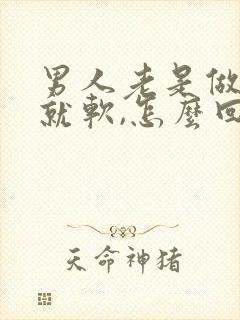 男人老是做
就軟,怎麼回
天命神猪